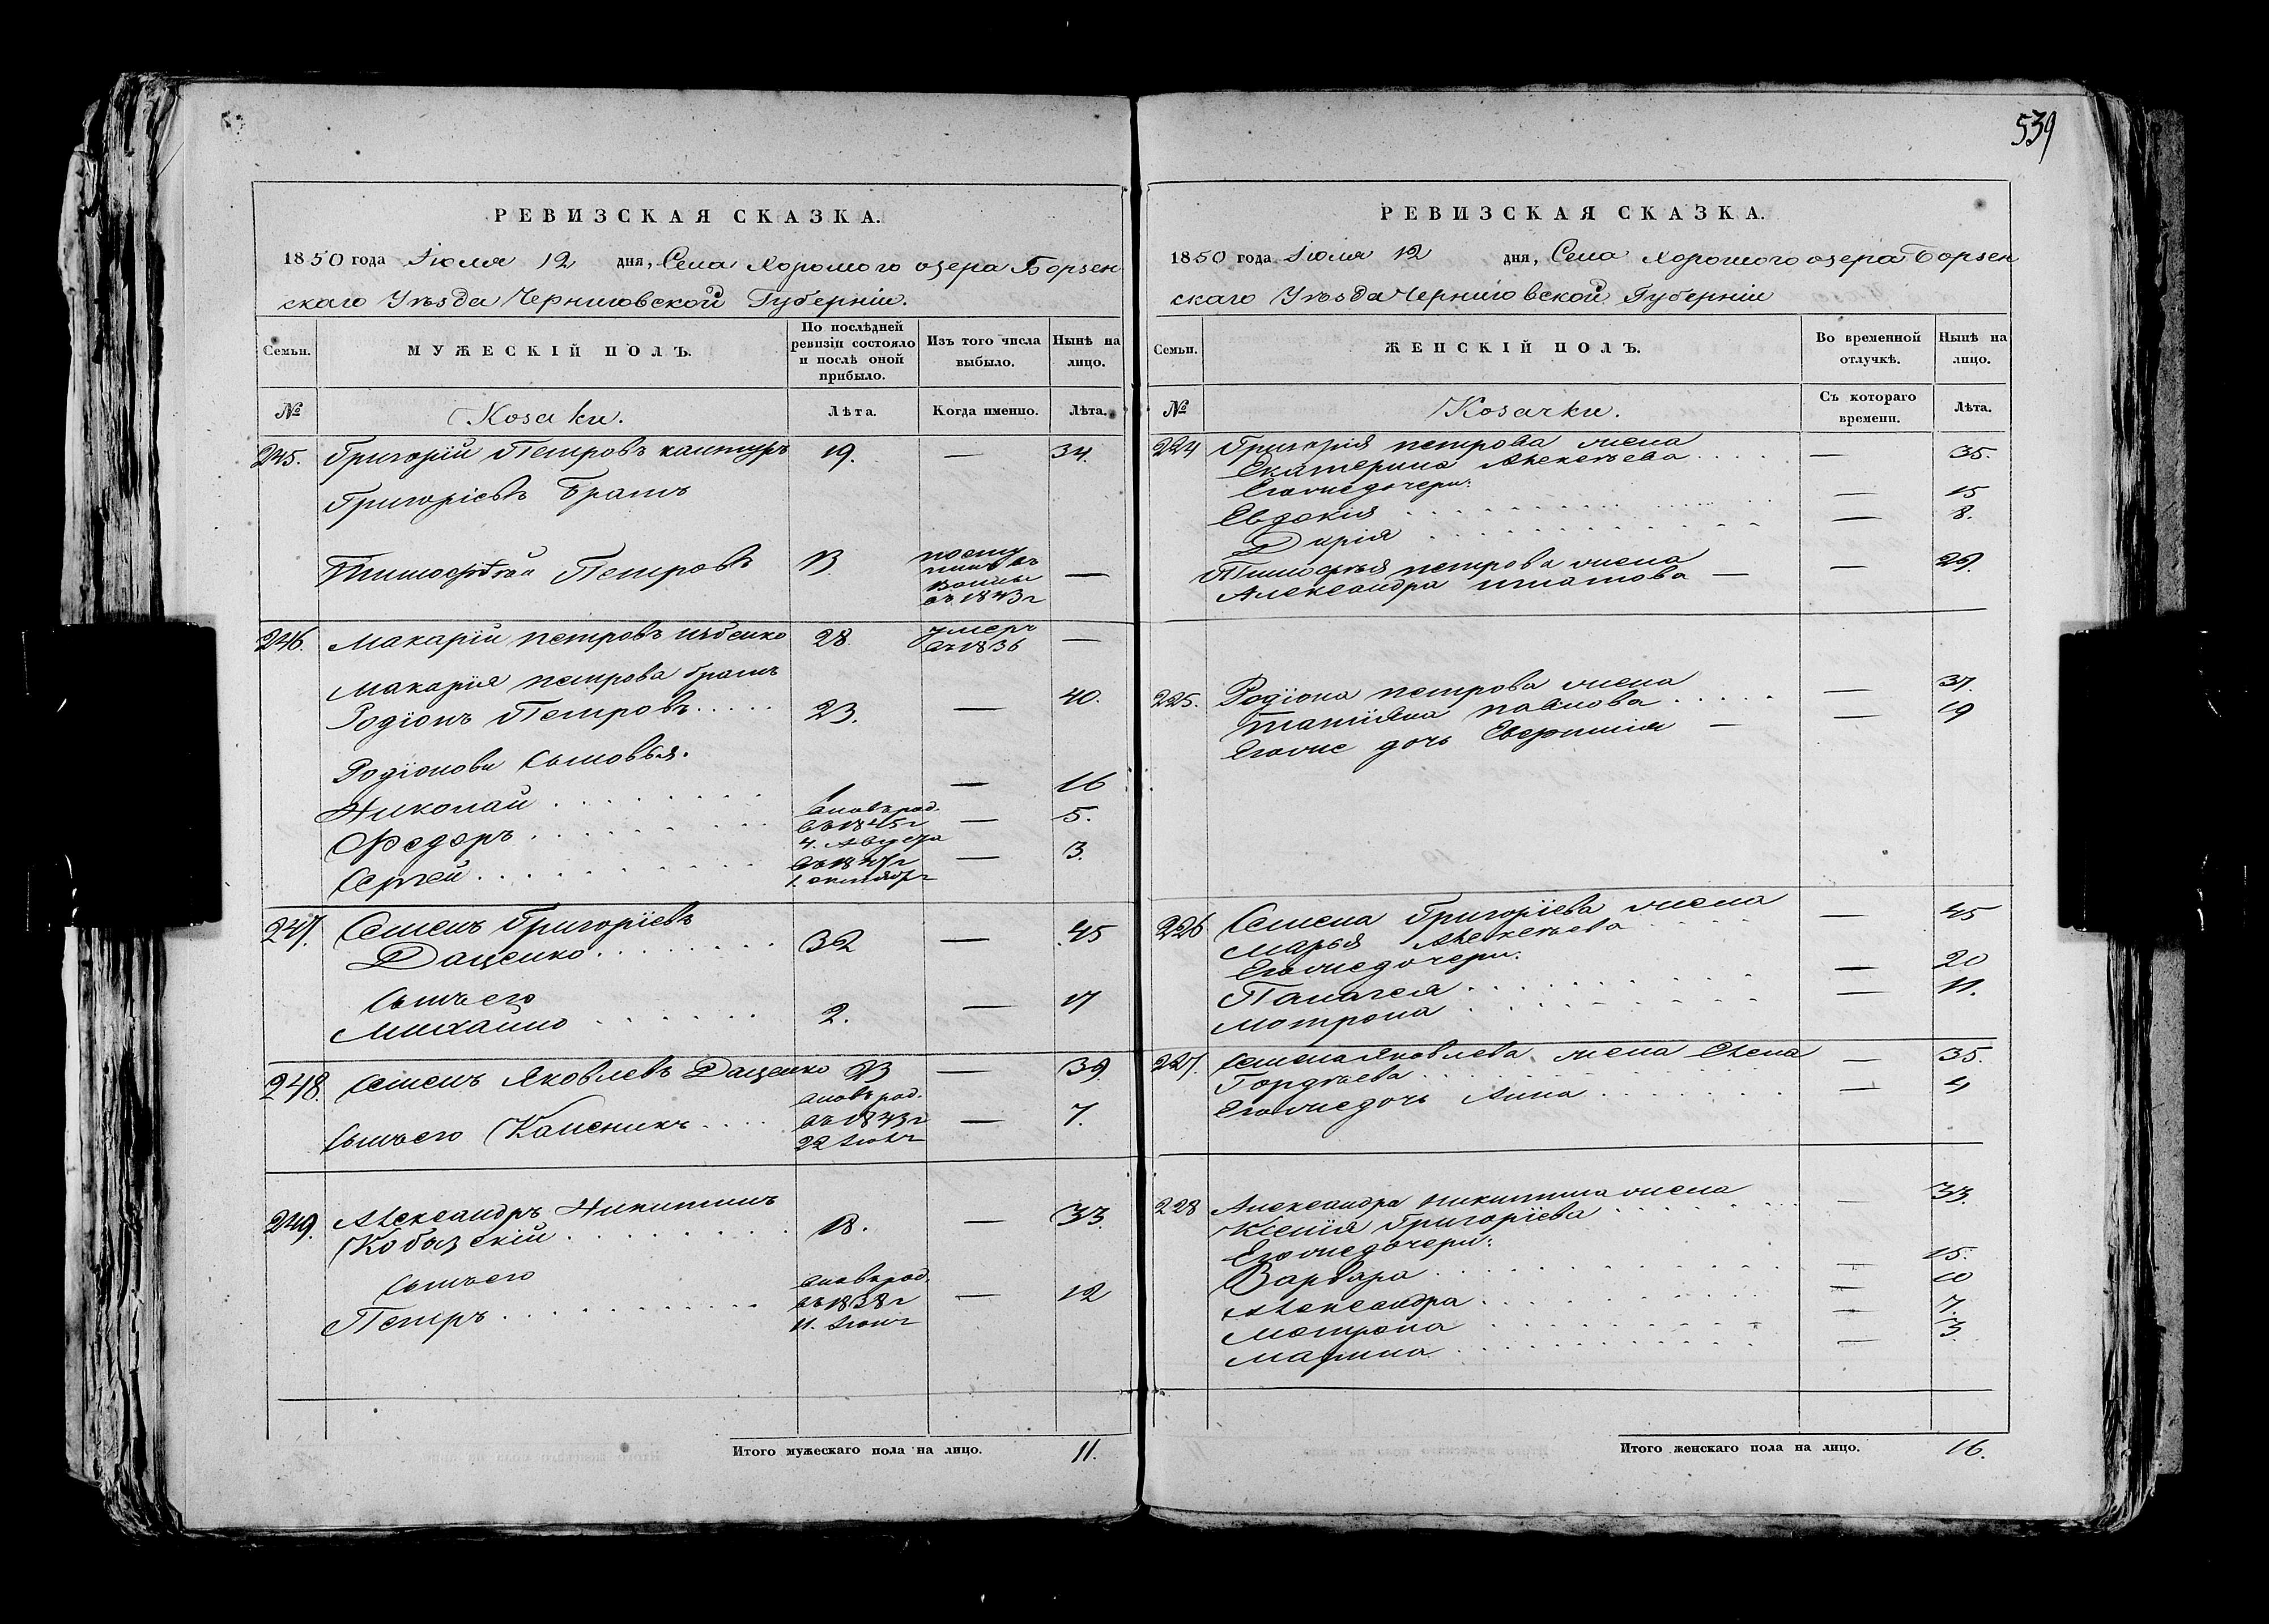 539
РЕВИЗСКАЯ СКАЗКА.
1850 года Іюля 12 дня, Села Хорошого озера Борзен
скаго Уѣзда Черниговской Губерніи.
Семьи. МУЖЕСКІЙ ПОЛЪ. По послѣдней ревизіи состояло и послѣ оной прибыло. Изъ того числа выбыло. Нынѣ на лицо.
№ Козаки. Лѣта. Когда именно. Лѣта.
245. Григорій Петровъ кантуръ 19. — 34.
Григоріевъ братъ
Тимофѣй Петровъ 13. посту
пилъ въ
—
въ 1843 г
246. Макарій петровъ 28. умеръ —
въ 1836
Макарія петрова братъ
Родіонъ Петровъ 23. — 40.
Родіонови сыновья.
Николай 1 — 16
Федоръ вновь род.
въ 1845 г — 5.
4. Августа
Сергей въ 1847 г — 3.
1. октября
247. Семенъ Григоріевъ
Даценко 32 — 45
Сынъ его
Михайло 2. — 17
248. Семенъ Яковлевъ Даценко 23 — 39
Сынъ его Каленикъ вновь род.
въ 1843 г — 7.
22
249. Александръ Никитинъ
Кобызскій 18. — 33.
Сынъ его
Петръ вновь род.
въ 1838 г — 12
11.
Итого мужескаго пола на лицо. 11.
РЕВИЗСКАЯ СКАЗКА.
1850 года Іюля 12 дня, Села Хорошого озера Борзен
скаго Уѣзда Черниговской Губерніи
Семьи. ЖЕНСКІЙ ПОЛЪ. Во временной отлучкѣ. Нынѣ на лицо.
№ Козачки. Съ котораго времени. Лѣта.
224 Григорія петрова жена
Екатерина Алексѣева — 35.
Егоже дочери:
Евдокія — 15
Дарія — 8.
Тимофѣя петрова жена
Александра игнатова — 29.
225. Родіона петрова жена
Татіяна павлова — 37.
Егоже дочь Евфимія — 19
226 Семена Григоріева жена
Марья Алексѣева — 45
Егоже дочери:
Палагея — 20
Мотрона — 11.
227. Семена Яковлева жена Елена
Гордѣева — 35.
Егоже дочь Анна — 4
228 Александра никитина жена
Ксенія Григоріева — 33.
Егоже дочери:
Варвара — 15.
Александра — 10
Мотрона — 7.
Марина — 3.
Итого женскаго пола на лицо. 16.